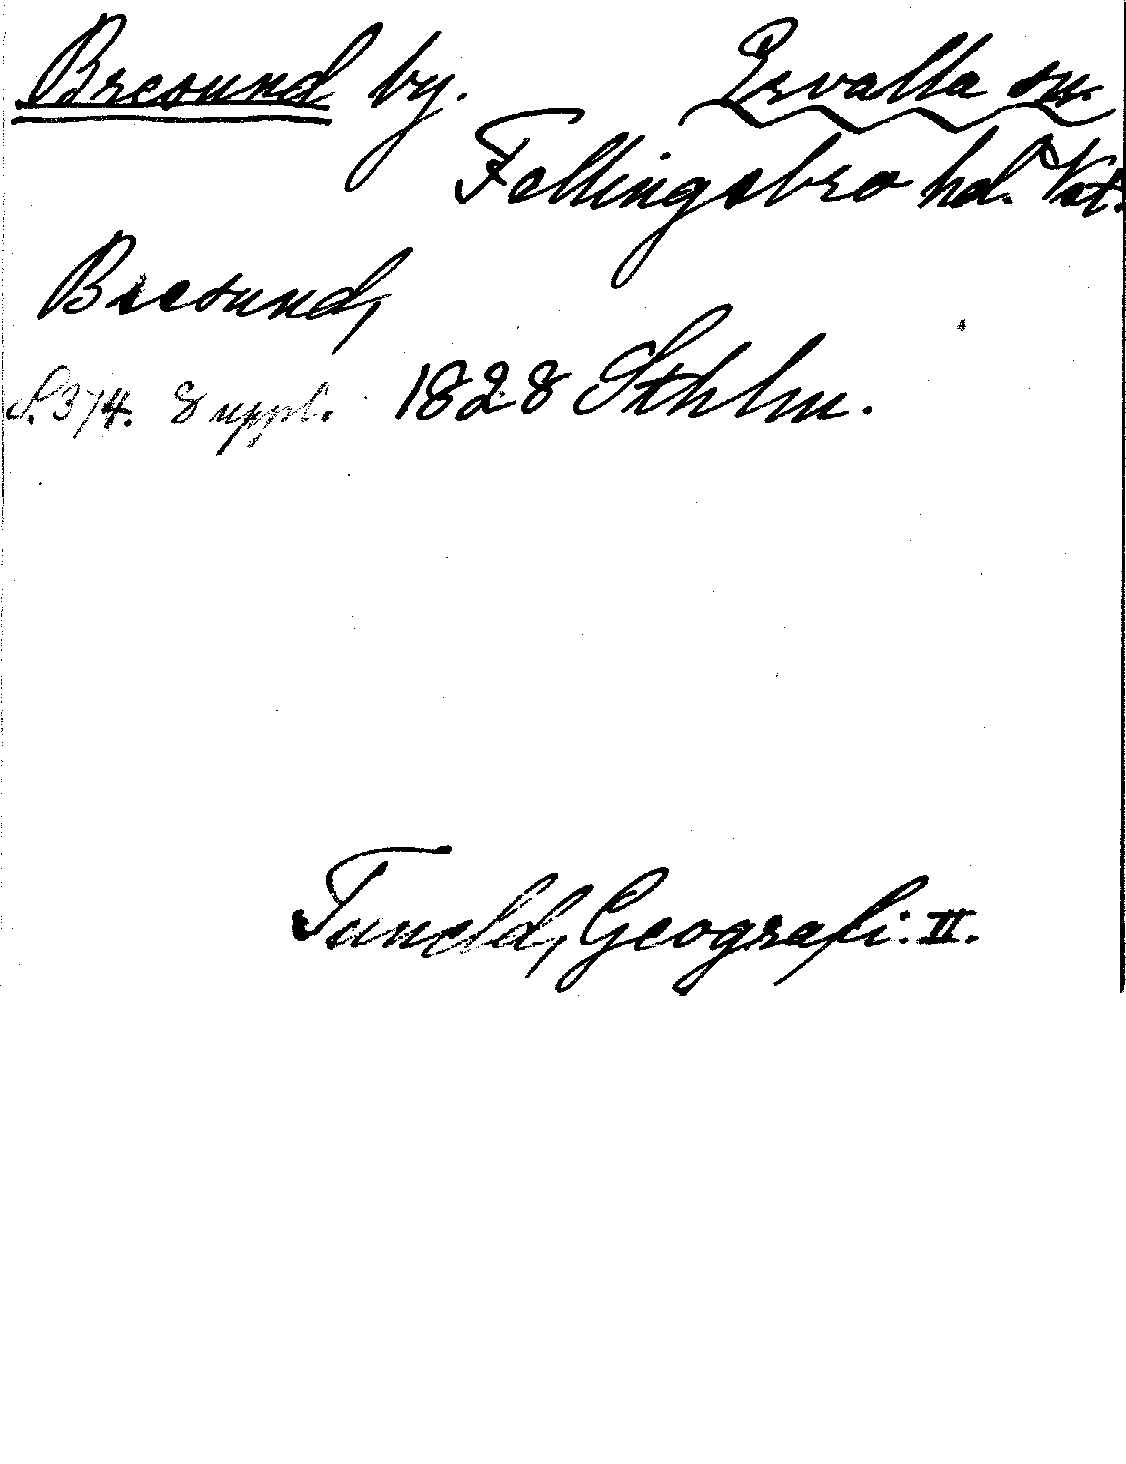 Bresund by. Ervalla sn.
Fellingsbro hd. Vst.
Bresund,
S. 374. 8 uppl. 1828 Sthlm.
Tuneld, Geografi. II.